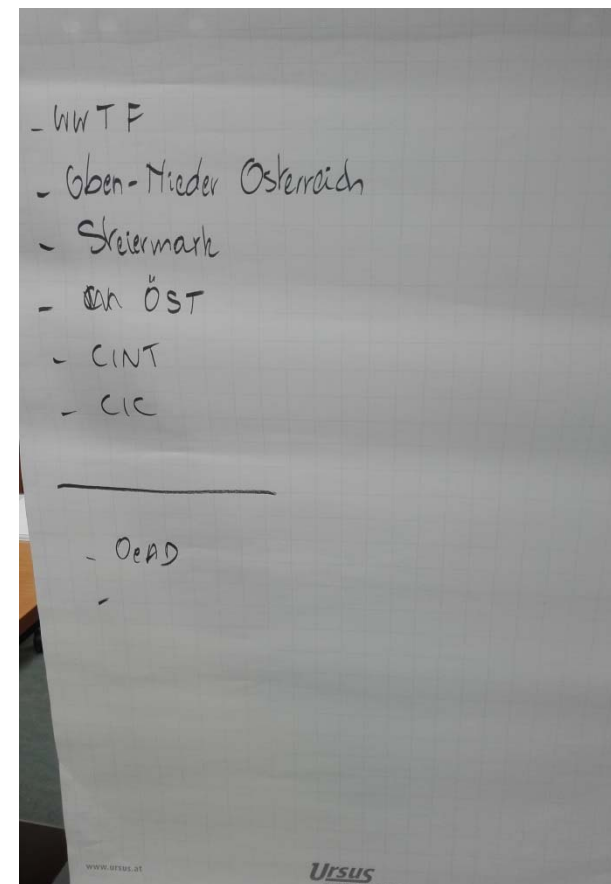 - WWTF
- Oben-Nieder Österreich
- Steiermark
- ÖST
- CINT
- CIC
- OeAD
-
www.ursus.at
Ursus